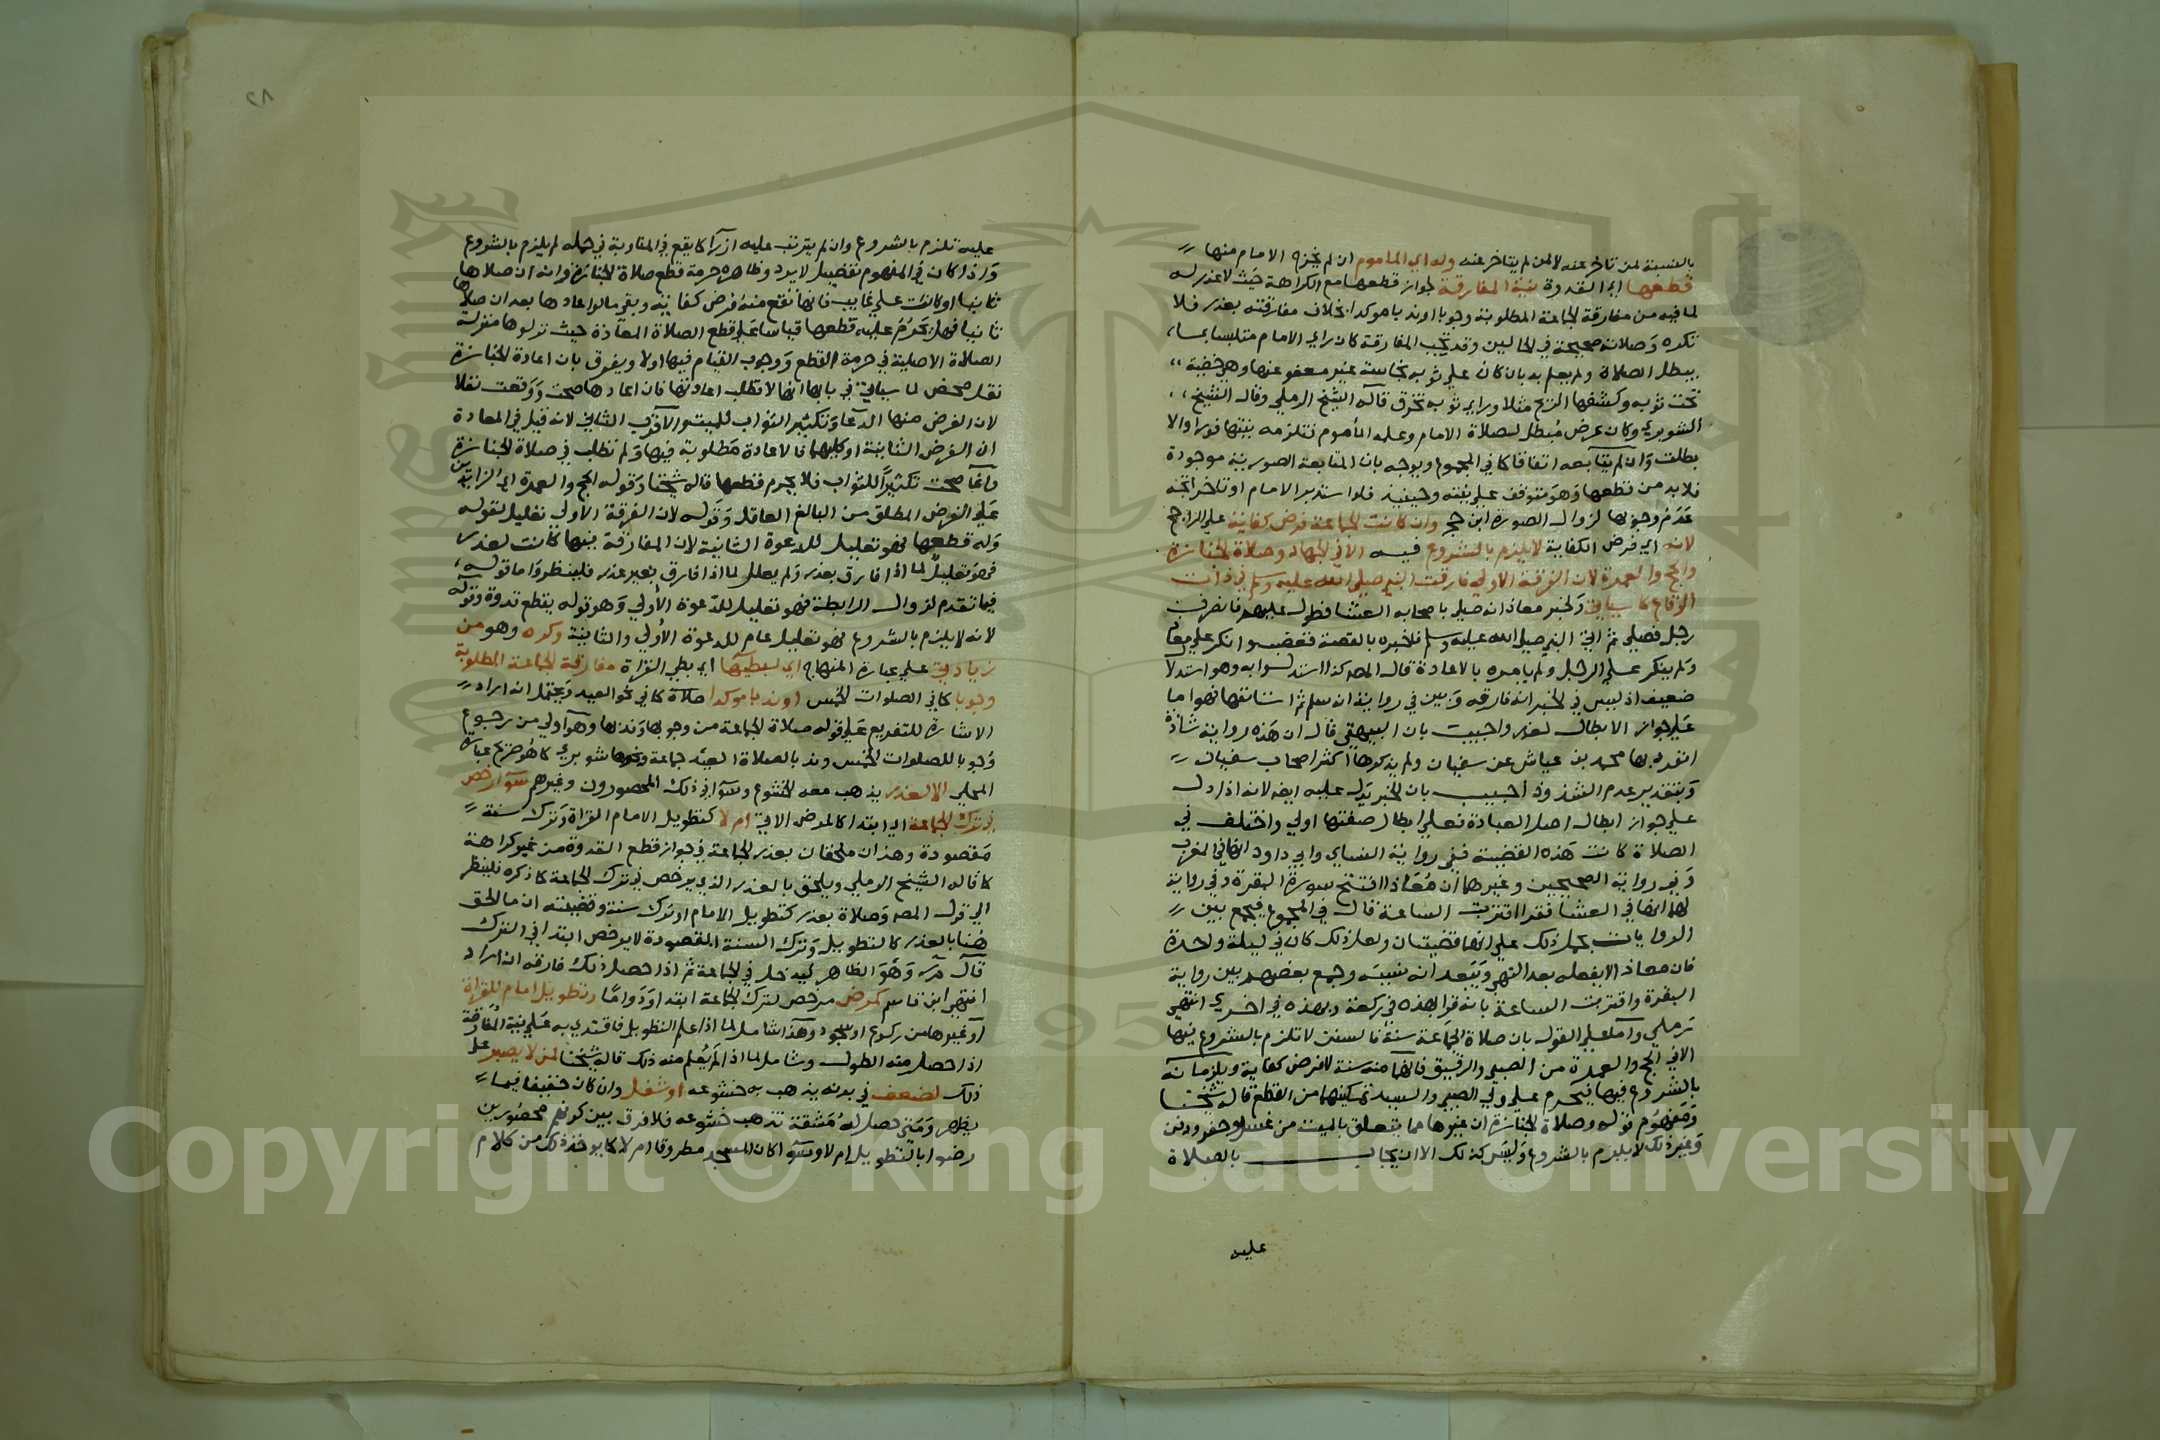 بالنسبة لمن تاخر عنه لا لمن لم يتاخر عنه وله اي الماموم ان لم يخرج الامام منها
قطعها اي القدوة بنية المفارقة لجواز قطعها مع الكراهة حيث لا عذر له
لما فيه من مفارقة الجماعة المطلوبة وجوبا او ندبا موكدا بخلاف مفارقته بعذر فلا
تكره وصلاته صحيحة في الحالين وقد تجب المفارقة كان راي الامام متلبسا بما
يبطل الصلاة ولم يعلم به بان كان علي ثوبه نجاسة غير معفو عنها وهي خفية
تحت ثوبه وكشفها الريح مثلا وراي ثوبه تخرق قاله الشيخ الرملي وقال الشيخ
الشوبري وكان عرض مبطل لصلاة الامام وعلمه الماموم فتلزمه بنيتها فورا والا
بطلت وان لم يتابعه اتفاقا كما في المجموع ويوجه بان المتابعة الصورية موجودة
فلا بد من قطعها وهو متوقف علي نيته وحينئذ فلو استدبر الامام او تاخر اتجه
عدم وجوبها لزوال الصورة ابن حجر وان كانت الجماعة فرض كفاية علي الراجح
لانه اي فرض الكفاية لا يلزم بالشروع فيه الا في الجهاد وصلاة الجنازة
والحج والعمرة لان الفرقة الاولي فارقت النبي صلي الله عليه وسلم في ذات
الرقاع كما سياتي ولخبر معاذ انه صلي باصحابه العشا فطول عليهم فانصرف
رجل فصلي ثم اتي النبي صلي الله عليه وسلم فاخبره بالقصة فغضب وانكر علي معاذ
ولم ينكر علي الرجل ولم يامره بالاعادة قال المصه كذا استدلوا به وهو استدلال
ضعيف اذ ليس في الخبر انه فارقه وبين في رواية انه سلم ثم استانفها فهو اما
علي جواز الابطال لعذر واجيب بان البيهقي قال ان هذه رواية شاذة
انفرد بها محمد بن عياش عن سفيان ولم يذكرها اكثر اصحاب سفيان
وبتقدير عدم الشذوذ اجيب بان الخبر يدل عليه ايضا لانه اذا دل
علي جواز ابطال اصل العبادة فعلي ابطال صفتها اولي واختلف في
الصلاة كانت هذه القضية ففي رواية النساي وابي داود انها في المغرب
وفي رواية الصحيحين وغيرهما ان معاذا افتتح سورة البقرة وفي رواية
لهما انها في العشا فقرا اقتربت الساعة قال في المجموع فيجمع بين
الروايات بحمل ذلك علي انها قضيتان ولعل ذلك كان في ليلة واحدة
فان معاذ لا يفعله بعد النهي ويبعد انه نسيه وجمع بعضهم بين رواية
البقرة واقتربت الساعة بانه قرا بهذه في ركعة وبهذه في اخري انتهي
رملي واما علي القول بان صلاة الجماعة سنة فالسنن لا تلزم بالشروع فيها
الا في الحج والعمرة من الصبي والرقيق فانهما منه سنة لا فرض كفاية ويلزمانه
بالشروع فيهما فيحرم علي ولي الصبي والسيد تمكينهما من القطع قاله شيخنا
ومفهوم قوله وصلاة الجنازة ان غيرها مما يتعلق بالميت من غسل وحفر ودفن
وغير ذلك لا يلزم بالشروع وليس كذلك الا ان يجاب بالصلاة
عليه
٢٨
عليه تلزم بالشروع وان لم يترتب عليه ازرا كما يقع في المقاوبة في حمله لم يلزم بالشروع
واذا كان في المفهوم تفصيل لا يرد وظاهره حرمة قطع صلاة الجنازة وانه ان صلاها
ثانيا او كانت علي غايب فانها تقع منه فرض كفاية وبقي ما لو اعادها بعد ان صلاها
ثانيا فهل يحرم عليه قطعها قياسا علي قطع الصلاة المعادة حيث نزلوها منزلة
الصلاة الاصلية في حرمة القطع ووجوب القيام فيها اولا ويفرق بان اعادة الجنازة
نفل محض لما سياتي في بابها انها لا تطلب اعادتها فان اعادها صحت ووقعت نفلا
لان الغرض منها الدعا وتكثير الثواب للميت والاقرب الثاني لانه قيل في المعادة
ان الفرض الثانية او كليهما فالاعادة مطلوبة فيها ولم تطلب في صلاة الجنازة
وانما صحت تكثيرا للثواب فلا يحرم قطعها قاله شيخنا وقوله الحج والعمرة اي الزايدين
علي الفرض المطلق من البالغ العاقل وقوله لان الفرقة الاولي تعليل لقوله
وله قطعها فهو تعليل للدعوة الثانية لان المفارقة بينها كانت لعذر
فهو تعليل لما اذا فارق بعذر ولم يعلل لما اذا فارق بغير عذر فلينظر واما قوله
فيما تقدم لزوال الرابطة فهو تعليل للدعوة الاولي وهو قوله بقطع قدوة وقوله
لانه لا يلزم بالشروع فهو تعليل عام للدعوة الاولي والثانية وكره وهو من
زيادتي علي عبارة المنهاج اي لبطيها اي بطي القراة مفارقة الجماعة المطلوبة
وجوبا كما في الصلوات الخمس او ندبا موكدا صلاة كما في نحو العيد ويحتمل انه اراد
الاشارة للتفريع علي قوله صلاة الجماعة من وجوبها وندبها وهو اولي من رجوع
وجوبا للصلوات الخمس وندبا لصلاة العيد جماعة ونحوها شوبري كما هو صريح عبارة
المحلي الا لعذر يذهب معه الخشوع وسوا في ذلك المحصورون وغيرهم سوا رخص
في ترك الجماعة اي ابتدا كالمرض الاتي ام لا كتطويل الامام القراة وترك سنة
مقصودة وهذان ملحقان بعذر الجماعة في جواز قطع القدوة من غير كراهة
كما قاله الشيخ الرملي ويلحق بالعذر الذي يرخص في ترك الجماعة كما ذكره فلينظر
الي قول المصه وصلاة بعذر كتطويل الامام او ترك سنة وقضيته ان ما الحق
هنا بالعذر كالتطويل وترك السنة المقصودة لا يرخص ابتدا في الترك
قال مر وهو الظاهر ليدخل في الجماعة ثم اذا حصل ذلك فارقه ان اراد
انتهي ابن قاسم كمرض مرخص لترك الجماعة ابتدا ودواما وتطويل امام للقراة
او غيرها من ركوع او سجود وهذا شامل لما اذا علم التطويل فاقتدي به علي نية المفارقة
اذا حصل منه الطول وشامل لما اذا لم يعلم منه ذلك قاله شيخنا لمن لا يصبر علي
ذلك لضعف في بدنه يذهب به خشوعه او شغل وان كان خفيفا فيما
يظهر ومتي حصل له مشقة تذهب خشوعه فلا فرق بين كونهم محصورين
رضوا بالتطويل ام لا وسوا كان المسجد مطروقا ام لا كما يوخذ ذلك من كلام
Copyright © King Saud University
1957